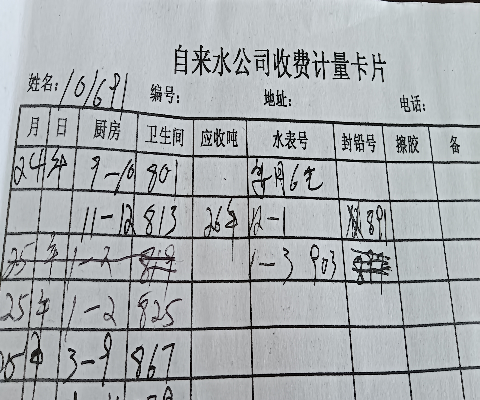 自来水公司收费计量卡片
姓名: 编号: 地址: 电话:
月 日 厨房 卫生间 应收吨 水表号 封铅号 擦胶 备
24年 9-10 801 每月6元
11-12 813 26年 12-1 891
25年 1-2 819 1-3 903
25年 1-2 825
25年 3-9 867